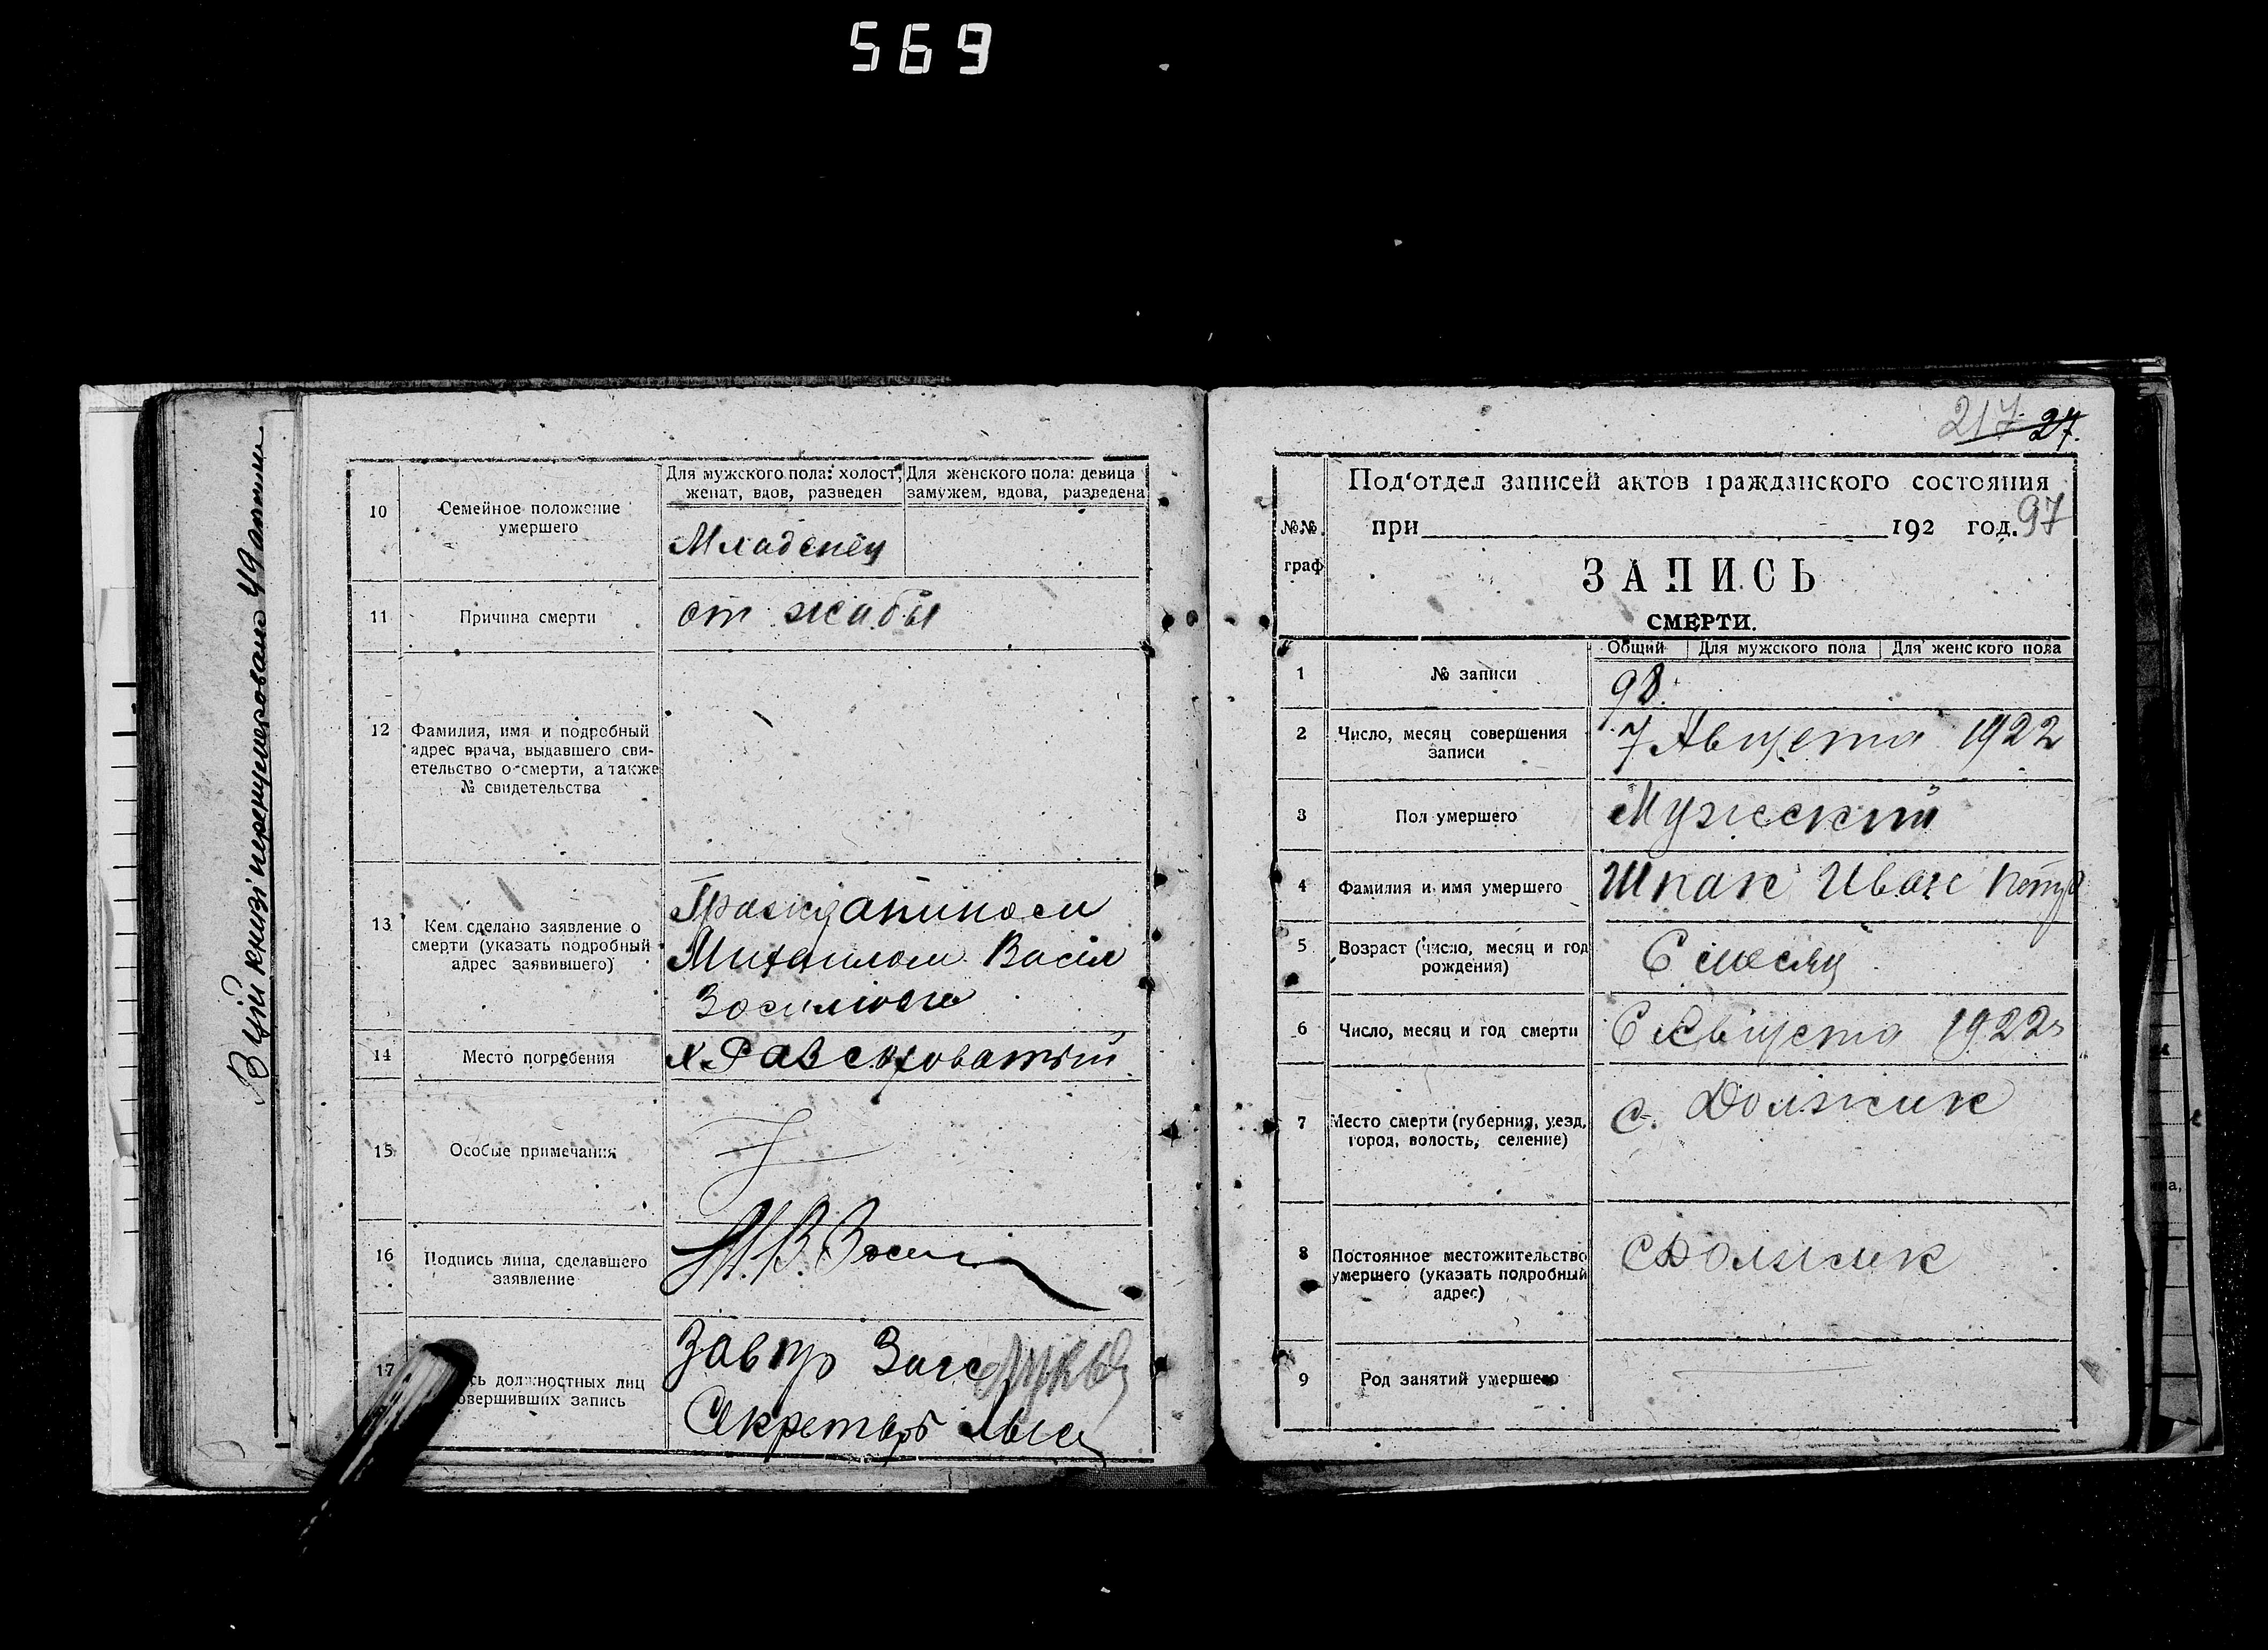 569
В цій книзі перенумеровано 49 актів
10
Семейное положение
умершего
Для мужского пола: холост,
женат, вдов, разведен
Для женского пола: девица
замужем, вдова, разведена
Младенец
11
Причина смерти
от жабы
12
Фамилия, имя и подробный
адрес врача, выдавшего сви-
етельство о смерти, а также
№ свидетельства
13
Кем сделано заявление о
смерти (указать подробный
адрес заявившего)
Гражданином
Михаилом Васил
14
Место погребения
х.
15
Особые примечания
16
Подпись лица, сделавшего
заявление
М. В.
17
сь должностных лиц
овершивших запись
Завпр Загс
Секретарь
217 27.
№№
граф
Под'отдел записей актов гражданского состояния
при 192 год. 97
ЗАПИСЬ
СМЕРТИ.
Общий Для мужского пола Для женского пола
1
№ записи
98.
2
Число, месяц совершения
записи
7 Августа 1922
3
Пол умершего
Мужский
4
Фамилия и имя умершего
Шпак Иван
5
Возраст (число, месяц и год
рождения)
6 месяц
6
Число, месяц и год смерти
6 Августа 1922
7
Место смерти (губерния, уезд,
город, волость, селение)
с. Должик
8
Постоянное местожительство
умершего (указать подробный
адрес)
с Должик
9
Род занятий умершего